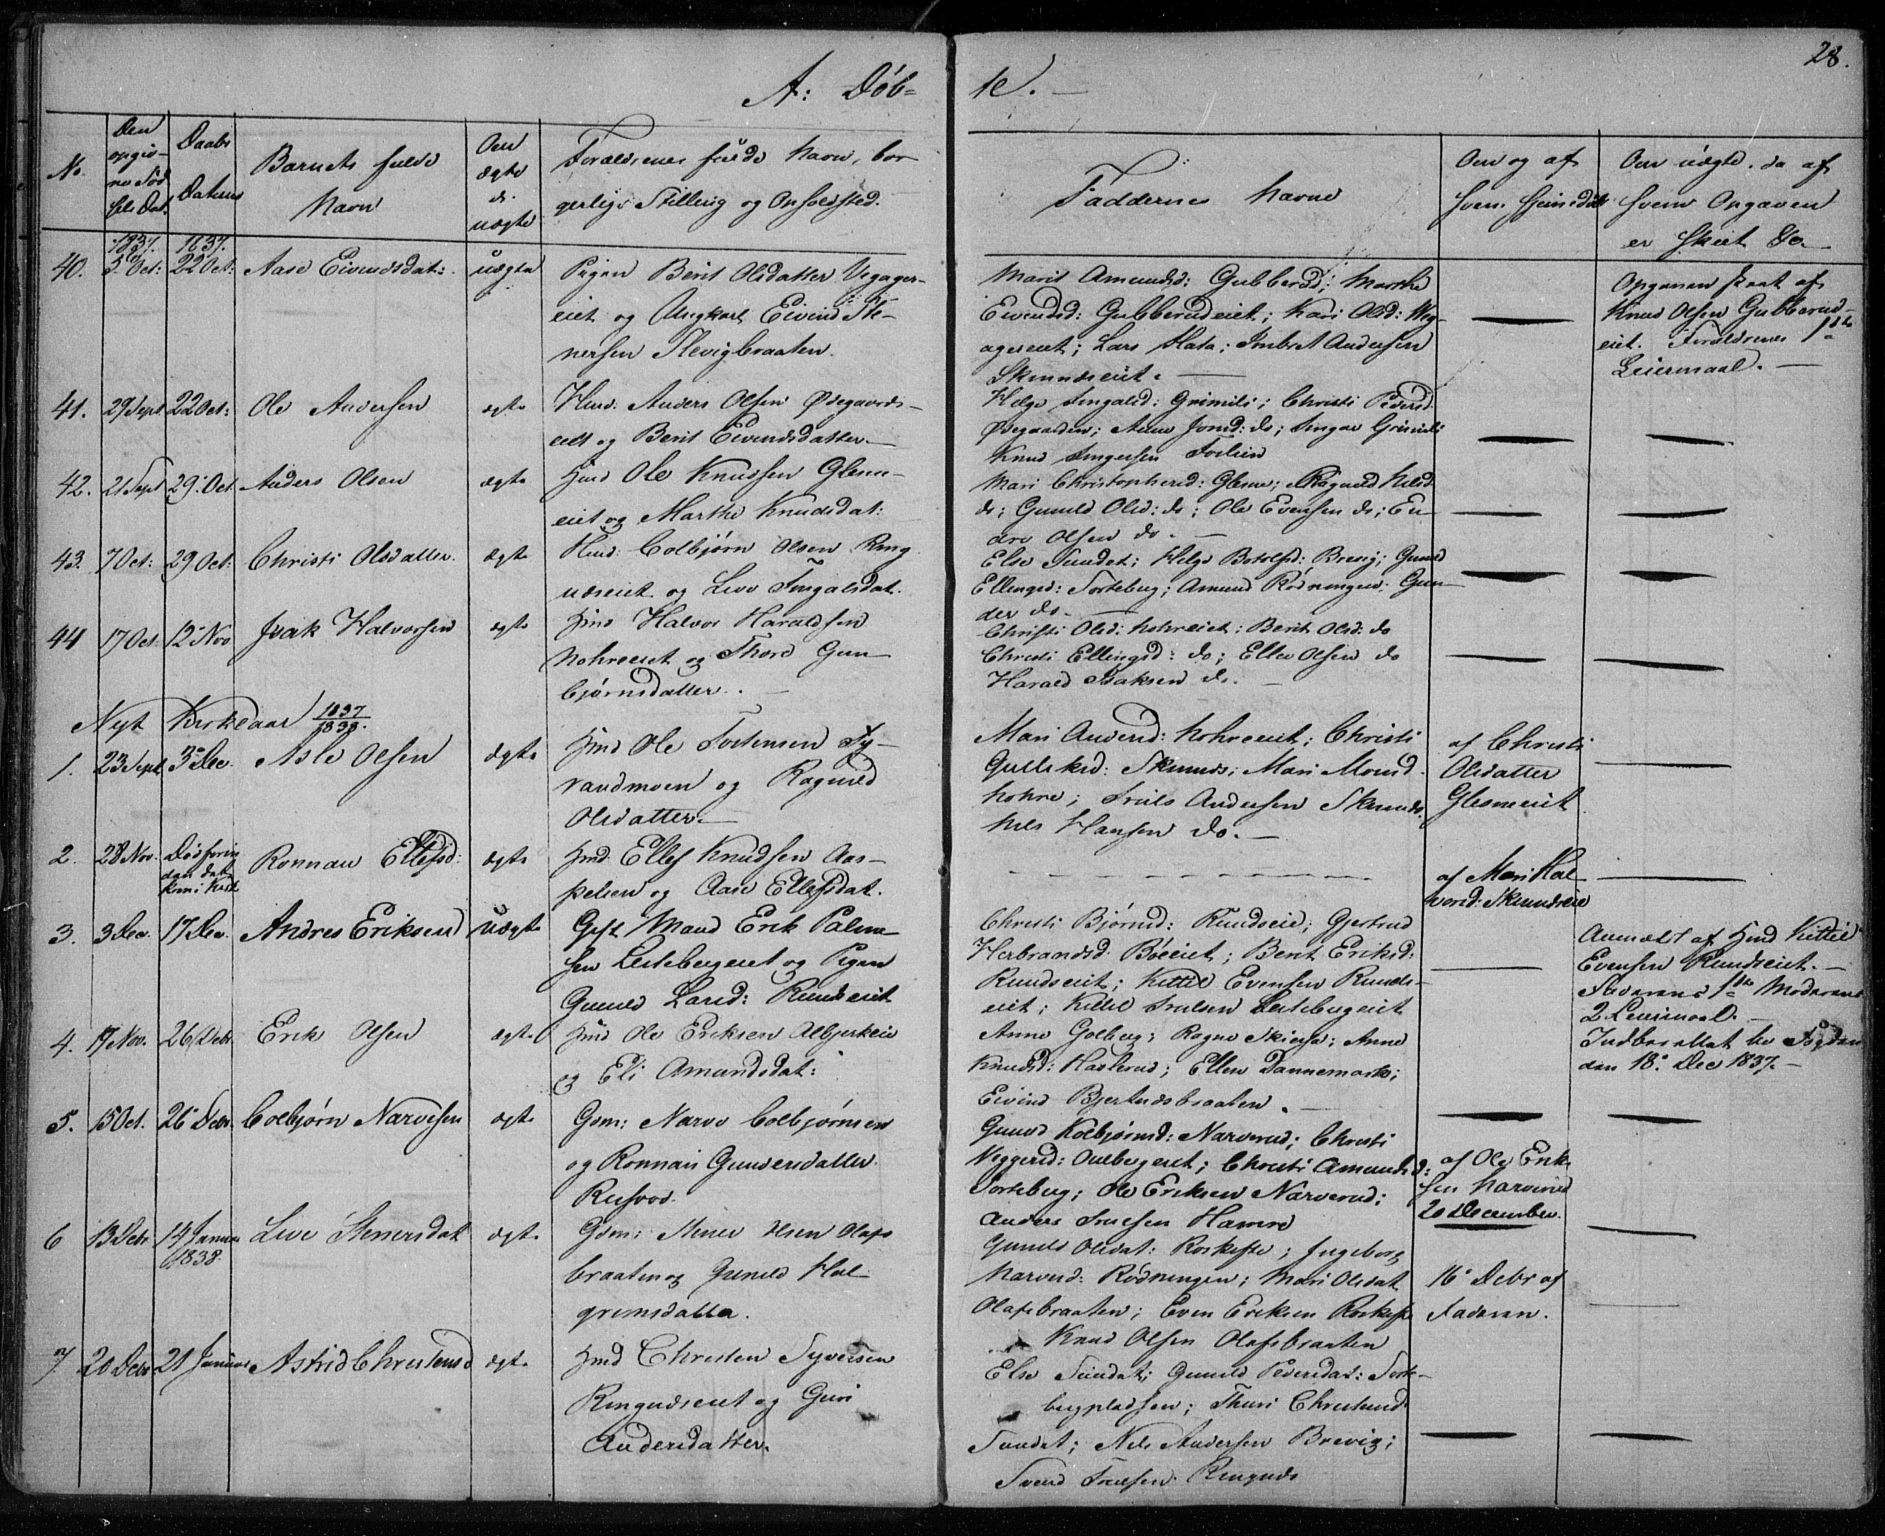 28.
A: Døb-
te.
No.
Den
opgiv-
ne Fød
sels Dat.
Daabs
Datum
Barnets fulde
Navn
Om
ægte
el.
uægte
Forældrenes fulde Navn, bor-
gerlige Stilling og Opholdsted.
Faddernes Navne
Om og af
hvem hjemedøbt
Om uægte, da af
hvem Opgaven
er skeet &c.
1837. 1837.
40. 5 Oct: 22 Oct: Aase Eivindsdat: uægte
Pigen Berit Olsdatter Vegager-
eiet og Ungkarl Eivind Ste-
nersen Slevigbraaten.
Marit Amundsd: Gubberud; Marthe
Eivindsd: Gubberudeiet; Kari Olsd: Veg-
agereiet; Lars Slata; Embret Andersen
Skinnæseiet.
Opgaven skeet af
Knud Olsen Gubberud-
eiet. Forældrenes 1ste
Leiermaal.
41. 29 Sept 22 Oct: Ole Andersen ægte
Husd: Anders Olsen Ødegaards-
eiet og Berit Eivindsdatter.
Helge Ingalsd: Grimeli; Christi Pedersd:
Ødegaarden; Anne Jonsd: do; Ingar Grimeli
Knud Ingersen
42. 21 Sept 29 Oct. Anders Olsen ægte
Hmd Ole Knudsen Glesne-
eiet og Marthe Knudsdat:
Mari Christophersd: Glesne; Ragnild Nilsd:
do; Gunild Olsd: do; Ole Evensen do; En-
dre Olsen do.
43. 7 Oct: 29 Oct: Christi Olsdatter. ægte
Husd: Colbjørn Olsen Ring-
næseiet og Live Ingalsdat.
Else Sundet; Helge Botolfsd: Brevig; Gunild
Ellingsd: Torteberg; Amund Rødningen; Gun-
der do.
44 17 Oct: 12 Nov Isak Halvorsen ægte
Hmd Halvor Haraldsen
Nohreeiet og Thore Gun-
bjørnsdatter.
Christi Olsd: Nohreeiet; Berit Olsd: do
Christi Ellingsd: do; Ellev Olsen do
Harald Isaksen do.
Nyt Kirkeaar 1837/1838.
1. 23 Sept 3 Dec. Asle Olsen ægte
Hmd Ole Torstensen Ty-
randmoen og Ragnild
Olsdatter.
Mari Andersd: Nohreeiet; Christi
Gulliksd: Skinnæs; Mari Monsd.
Nohre; Truls Andersen Skinnæs
Nils Hansen do.
af Christi
Olsdatter
Glesneeiet
2. 28 Nov. Død foren
den dats
kom i Kirk
Ronnau Ellefsd: ægte
Hmd: Ellef Knudsen Aas-
pelien og Aase Ellefsdat.
af Mari Hal-
vorsd: Skinnæseie
3. 3 Dec. 17 Dec. Andres Eriksen uægte
Gift Mand Erik Palme-
sen Leitebergeiet og Pigen
Gunild Larsd: Rundseiet
Christi Bjørnsd: Rundseie; Gjertrud
Herbrandsd: Bøeeiet; Berit Eriksd:
Rundseiet; Kittil Evensen Runds-
eiet; Kittil Trulsen Leitebergeiet
Anmeldt af Hmd Kittil
Evensen Rundseiet.
Faderens 1ste Moderens
2. Leiermaal.
Indberettet til Fogden
den 18. Dec 1837.
4. 17 Nov. 26 Debr. Erik Olsen ægte
Hmd Ole Eriksen Albjerkeie
og Eli Amundsdat:
Anne Golberg; Ragne Skiersø; Anne
Knudsd: Haskerud; Ellen Dannemarks;
Eivind Bjertnæsbraaten.
5. 15 Oct. 26 Debr. Colbjørn Narvesen ægte
Gdm: Narve Colbjørnsen
og Ronnau Gundersdatter
Rusvod.
Gunild Kolbjørnsd: Narverud; Christi
Viggersd: Omebergeiet; Christi Amundsd:
Torteberg; Ole Eriksen Narverud;
Anders Truesen Hamre
af Ole Erik-
sen Narverud
20 December.
6 13 Debr. 14 Januar
1838.
Live Stenersdat ægte
Gdm: Stener Olsen Olafs
braaten og Gunild Hal-
grimsdatter.
Gunild Olsdat: Roskifte; Ingeborg
Narvesd: Rødningen; Mari Olsdat
Olafsbraaten; Even Eriksen Roskifte
Knud Olsen Olafsbraaten
16 Debr af
Faderen.
7 20 Debr 21 Januar Astrid Christensd ægte
Hmd Christen Syversen
Ringnæseiet og Guri
Andersdatter.
Else Sundet; Gunild Pedersdat: Torte-
bergpladsen; Thuri Christensd
Sundet; Nils Andersen Brevig;
Svend Truesen Ringnæs